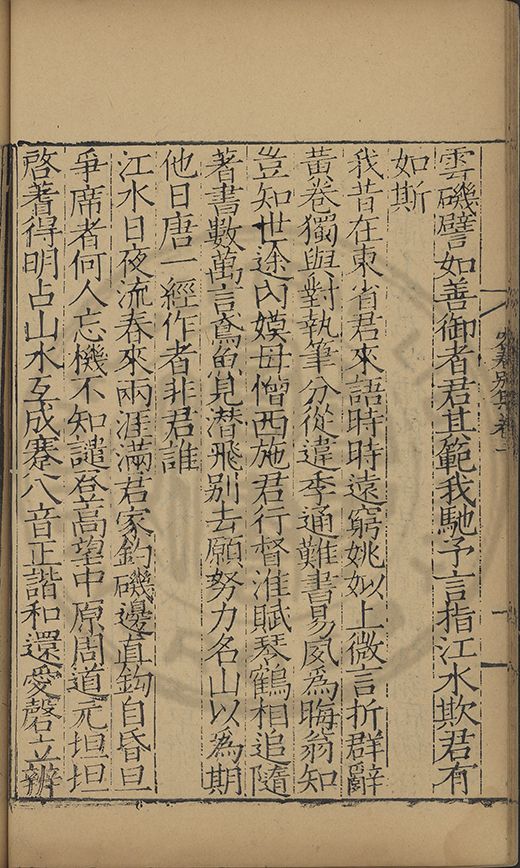 雲磯譬如善御者君其範我馳予言指江水欺君有
如斯
我昔在東省君來語時時遠窮姚姒上微言折群辭
黃卷獨與對執筆分從違季通難書易夙為晦翁知
豈知世途內嫫母憎西施君行督淮賦琴鶴相追隨
著書數萬言鳶魚見潛飛別去願努力名山以為期
他日唐一經作者非君誰
江水日夜流春來兩涯滿君家釣磯邊直鉤自昏旦
爭席者何人忘機不知譴登高望中原周道元坦坦
啓蓍得明占山水互成蹇八音正諧和還愛磬立辨